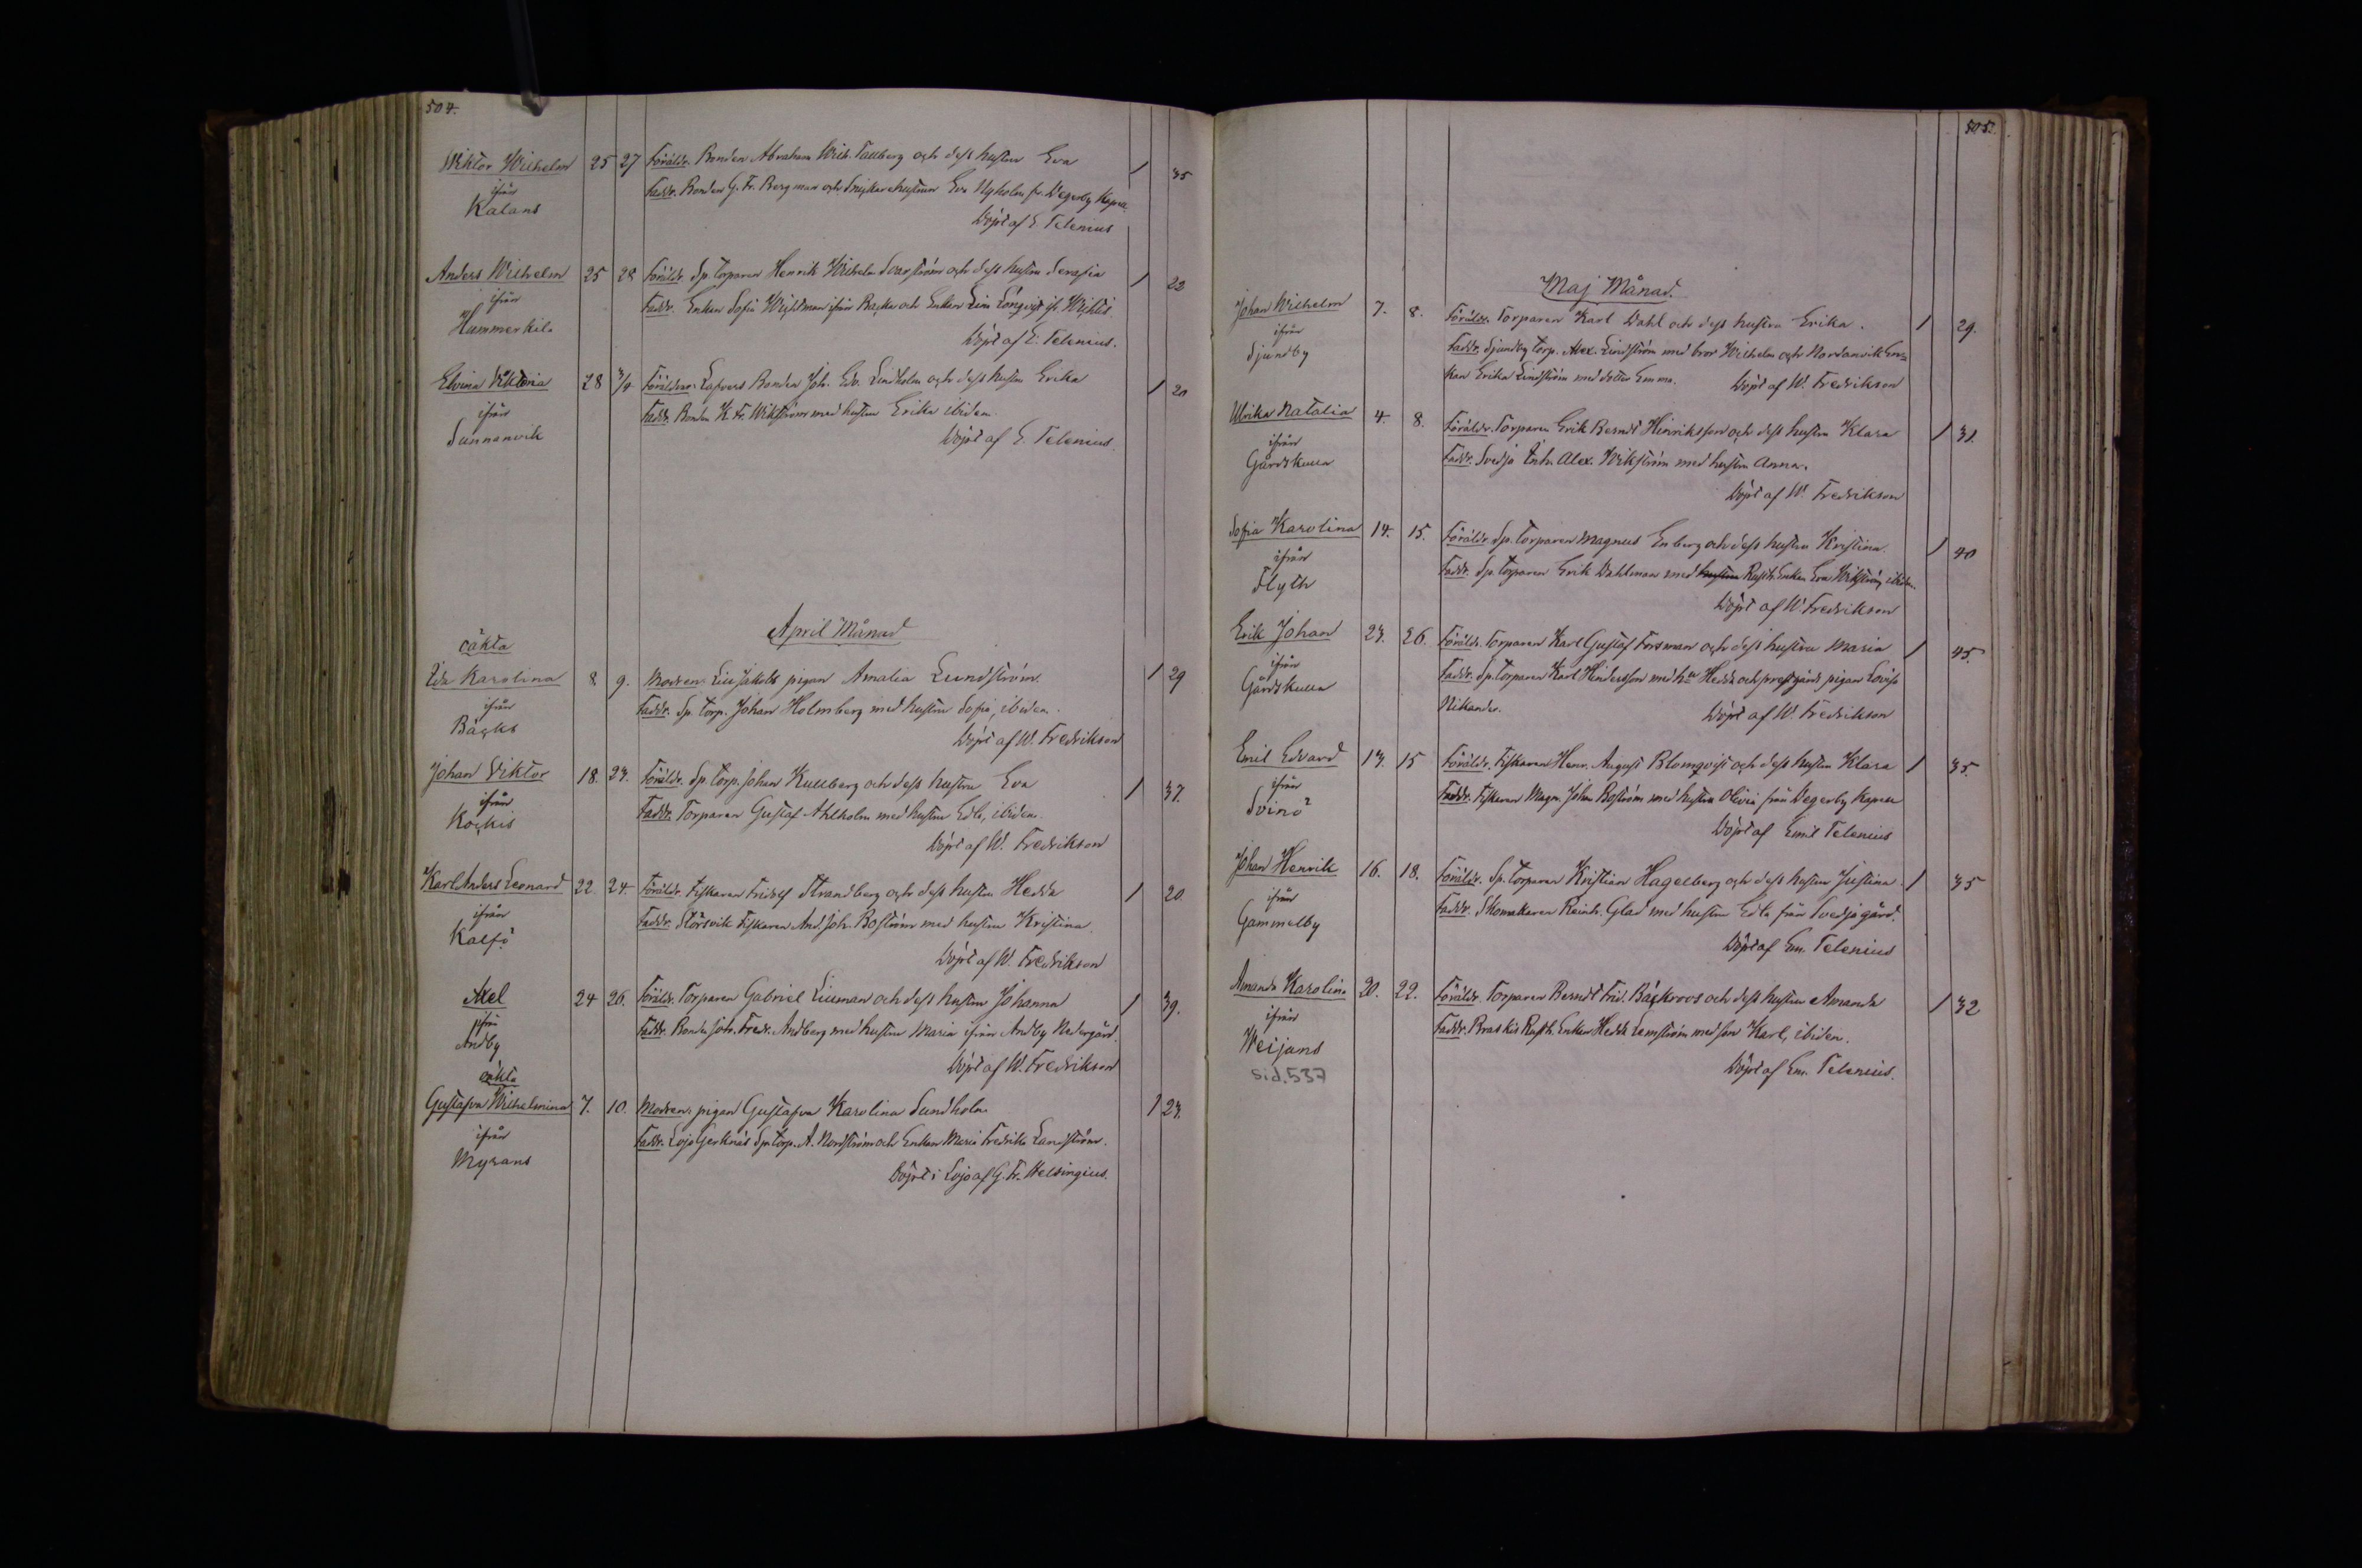 504.
Wiktor Wilhelm 25 27 Föräldr. Bonden Abraham Wilh. Tallberg och dess hustru Eva / 35
ifrån Faddr. Bonden G. Fr. Bergman och hustrun Eva Nyholm fr. Degerby Kapell
Kalans
Döpt af E. Telenius
Anders Wilhelm 25 28 Föräldr. Sp. torparen Henrik Wilhelm och dess hustru Serafia / 22
ifrån Faddr. Enkan Sofia Wichtman ifrån Backa och Enkan Lina Lönqvist
Hummerkila
Döpt af E. Telenius.
Elvina Viktoria 28 3/4 Föräldrar: Bonden Joh. Edv. Lindholm och dess hustru Erika / 20
ifrån Faddr. Bonden K. Fr. Wikström med hustru Erika ibidem
Sunnanvik
Döpt af E. Telenius.
April Månad
oäkta
Ida Karolina 8. 9. Modren: pigan Amalia Lundström. / 29
ifrån Faddr. Sp. torp. Johan Holmberg med hustru Sofia, ibidem.
Bäcks
Döpt af W. Fredrikson
Johan Viktor 18. 23. Föräldr. Sp. torp. Johan Kullberg och dess hustru Eva / 37.
ifrån Faddr. Torparen Gustaf Ahlholm med hustru Edla, ibidem.
Kockis
Döpt af W. Fredrikson
Karl Anders Leonard 22 24. Föräldr. Fiskaren Fridolf Strandberg och dess hustru Hedda / 20
ifrån Faddr. Störsvik Fiskaren And. Joh. Boström med hustru Kristina
Kalfö
Döpt af W. Fredrikson
Axel 24 26. Föräldr. Torparen Gabriel Liuman och dess hustru Johanna / 39.
ifrån Faddr. Bonden Joh. Fredr. Andberg med hustru Maria ifrån Andby Nedergård.
Andby
Döpt af W. Fredrikson
oäkta
Gustafva Wilhelmina 7. 10. Modren: pigan Gustafva Karolina Sundholm / 23.
ifrån Faddr. Lojo Gerknäs Sp. torp. A. Nordström och Enkan Maria Fredrika Lundström.
Myrans
Döpt i Lojo af G. Fr. Helsingius.
505.
Maj Månad.
Johan Wilhelm 7. 8. Föräldr. Torparen Karl Dahl och dess hustru Erika. / 29.
ifrån Faddr. Sjundby torp. Alex. Lindström med bror Wilhelm och Nordanvik En-
Sjundby kan Erika Lindström med dotter Emma. Döpt af W. Fredrikson
Ulrika Natalia 4. 8. Föräldr. Torparen Erik Berndt Hinriksson och dess hustru Klara / 31.
ifrån Faddr. Svedja Alex. Wikström med hustru Anna.
Gårdskulla
Döpt af W. Fredrikson
Sofia Karolina 14. 15. Föräldr. Sp. torparen Magnus Enberg och dess hustru Kristina. / 40
ifrån Faddr. Sp. torparen Erik Dahlman med hustru Rusth. Enkan Eva Wikström, ibidem.
Flyth
Döpt af W. Fredrikson
Erik Johan 23. 26. Föräldr. Torparen Karl Gustaf Forsman och dess hustru Maria / 45.
ifrån Faddr. Sp. torparen Karl Hindersson med hu Hedda och prestgårds pigan Lovisa
Gårdskulla Nikander. Döpt af W. Fredrikson
Emil Edvard 13. 15 Föräldr. Fiskaren Henr. August Blomqvist och dess hustru Klara / 35.
ifrån Faddr. Fiskaren Magn. Johan Boström med hustru Olivia från Degerby Kapell
Svinö
Döpt af Emil Telenius
Johan Henrik 16. 18. Föräldr. Sp. torparen Kristian Hagelberg och dess hustru Justina. / 35
ifrån Faddr. Skomakaren Reinh. Glad med hustru Edla från Svedja gård.
Gammelby
Döpt af Em. Telenius
Amanda Karolina 20. 22. Föräldr. Torparen Berndt Frid. Bäckroos och dess hustru Amanda / 32
ifrån Faddr. Braskis Rusth. Enkan Hedda Lemström med son Karl, ibidem.
Weijans
Döpt af Em. Telenius.
sid. 537